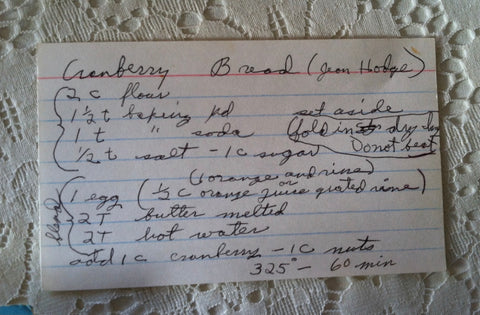 Cranberry Bread (Jean Hodge)
2 c flour
1 1/2 t baking pd set aside
1 t " soda fold into dry
1/2 t salt - 1c sugar Do not beat
(1 orange and rine)
1 egg (1/2 c orange juice or grated rine)
blend 2T butter melted
2T hot water
add 1 c cranberry - 1c nuts
325° - 60 min